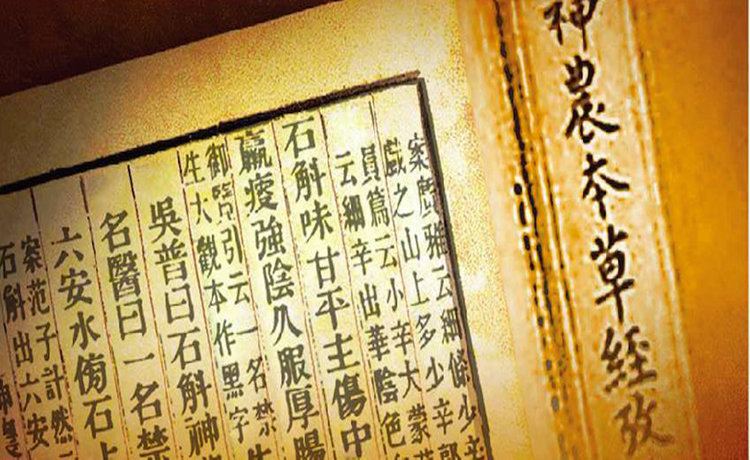 神農本草經攷
案廣雅云細條少辛
戲之山上多少辛郭
員篇云小辛大蒙
云細辛出華陰色
石斛味甘平主傷中
羸瘦強陰久服厚腸
御覽引云一名禁
生大觀本作黑字
吳普曰石斛神
名醫曰一名禁
六安水傍石上
案范子計然
石斛出六安
神農